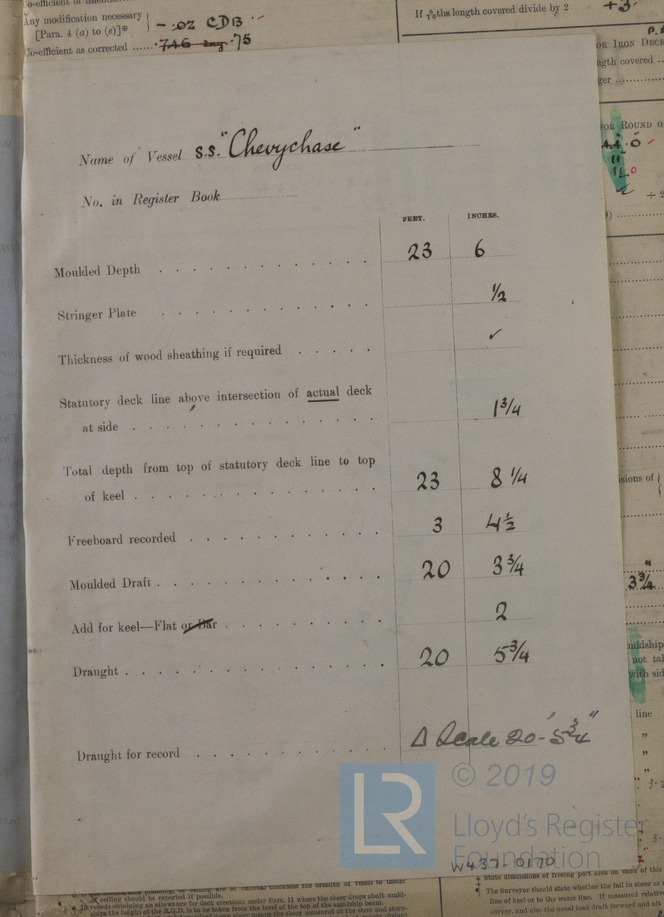 Any modification necessary
[Para. 4 (a) to (e)]* - .02 CDB
Co-efficient as corrected ...... .75
If 7/10ths length covered divide by 2 +3
Name of Vessel S.S. "Chevychase"
No. in Register Book
FEET. INCHES.
Moulded Depth 23 6
Stringer Plate 1/2
Thickness of wood sheathing if required ✓
Statutory deck line above intersection of actual deck
at side 1 3/4
Total depth from top of statutory deck line to top
of keel 23 8 1/4
Freeboard recorded 3 4 1/2
Moulded Draft 20 3 3/4
Add for keel—Flat or Bar 2
Draught 20 5 3/4
Draught for record Δ Scale 20'-5 3/4"
LR
© 2019
Lloyd's Register
Foundation
W437-0170